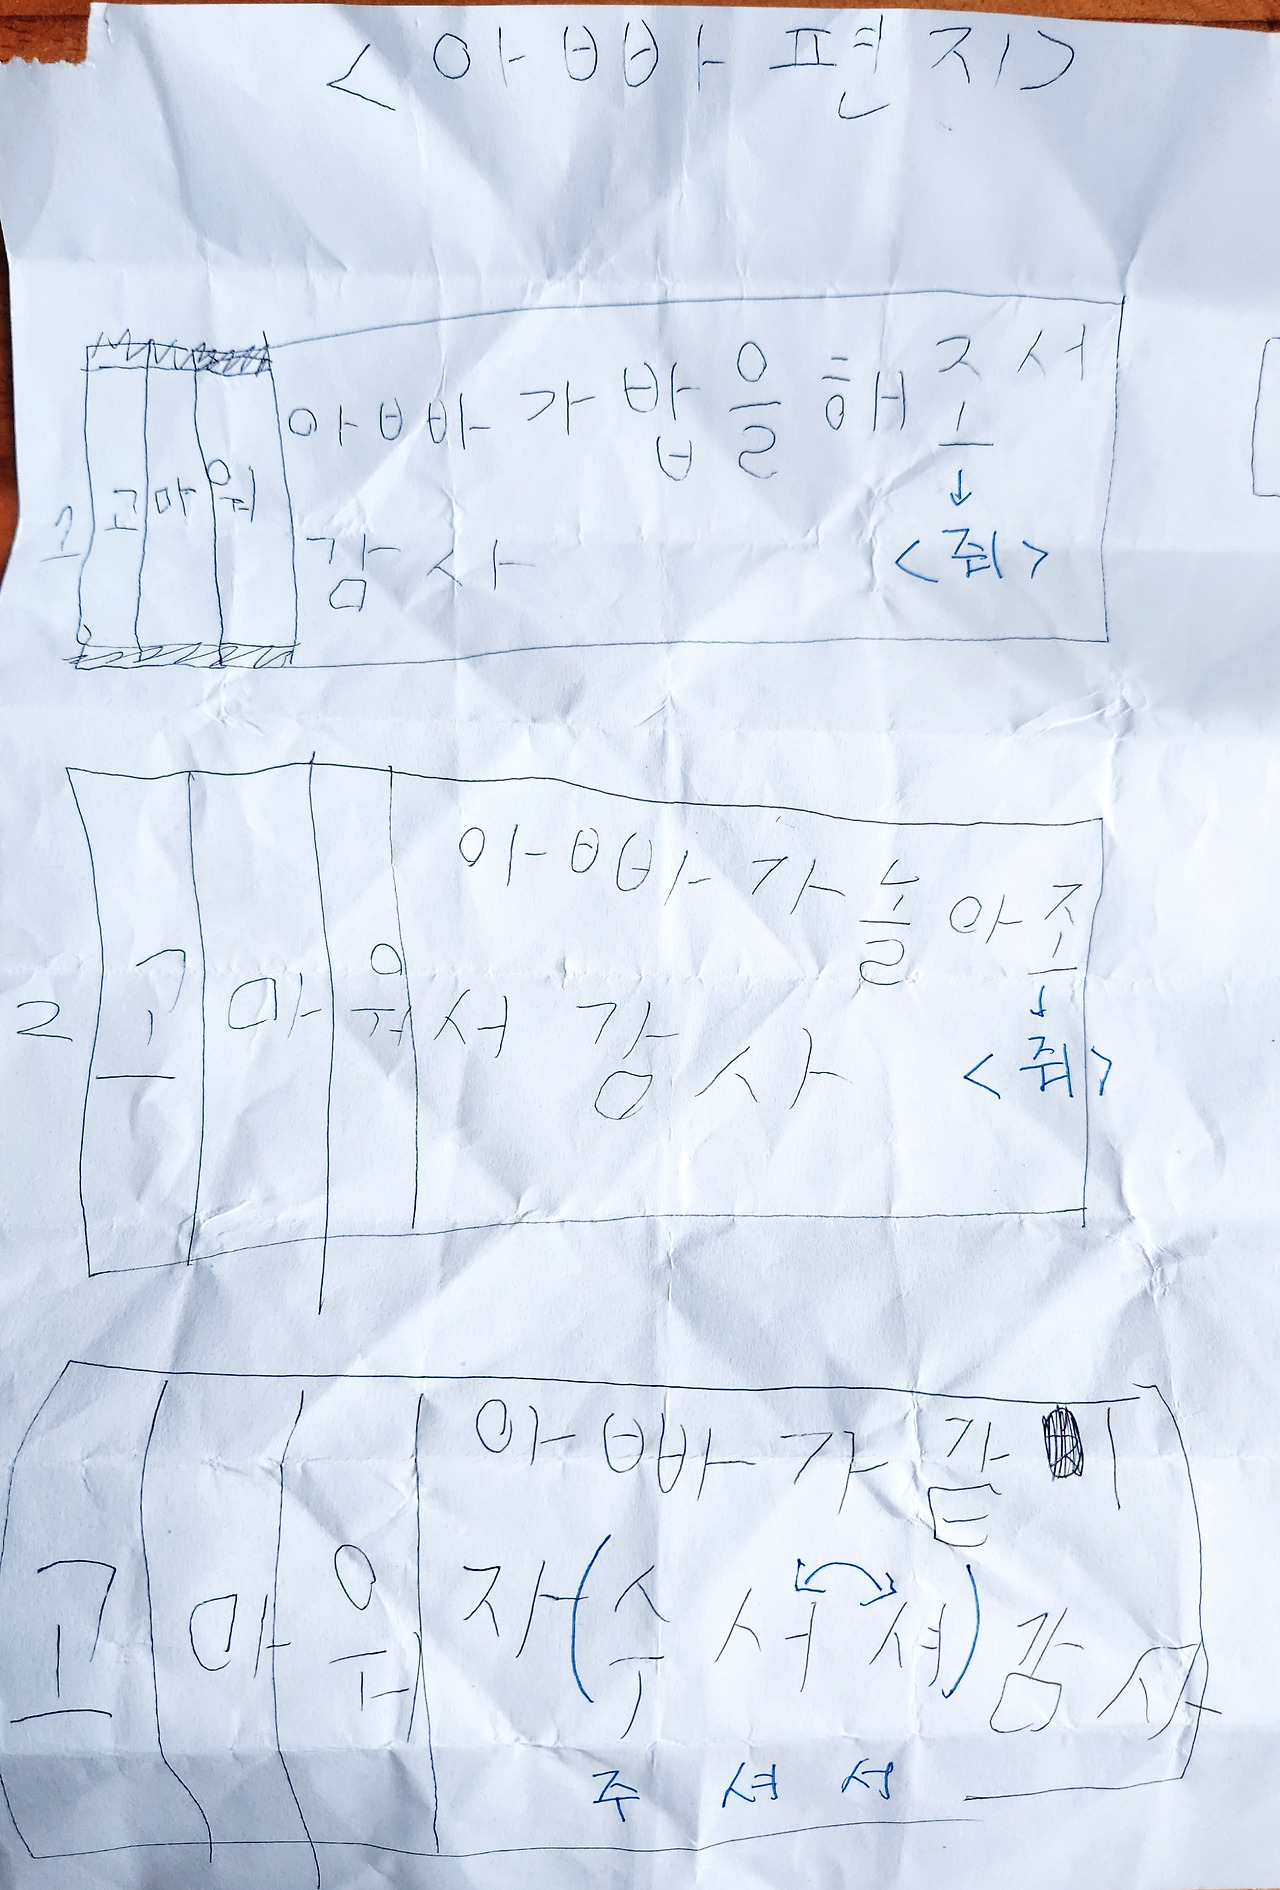 <아빠 편지>
1
고마워
아빠가 밥을 해조서
↓
<줘>
감사
2
고마워
아빠가 놀아조
↓
<줘>
서 감사
고마워
아빠가 같이
자(수서셔) 감사
주셔서